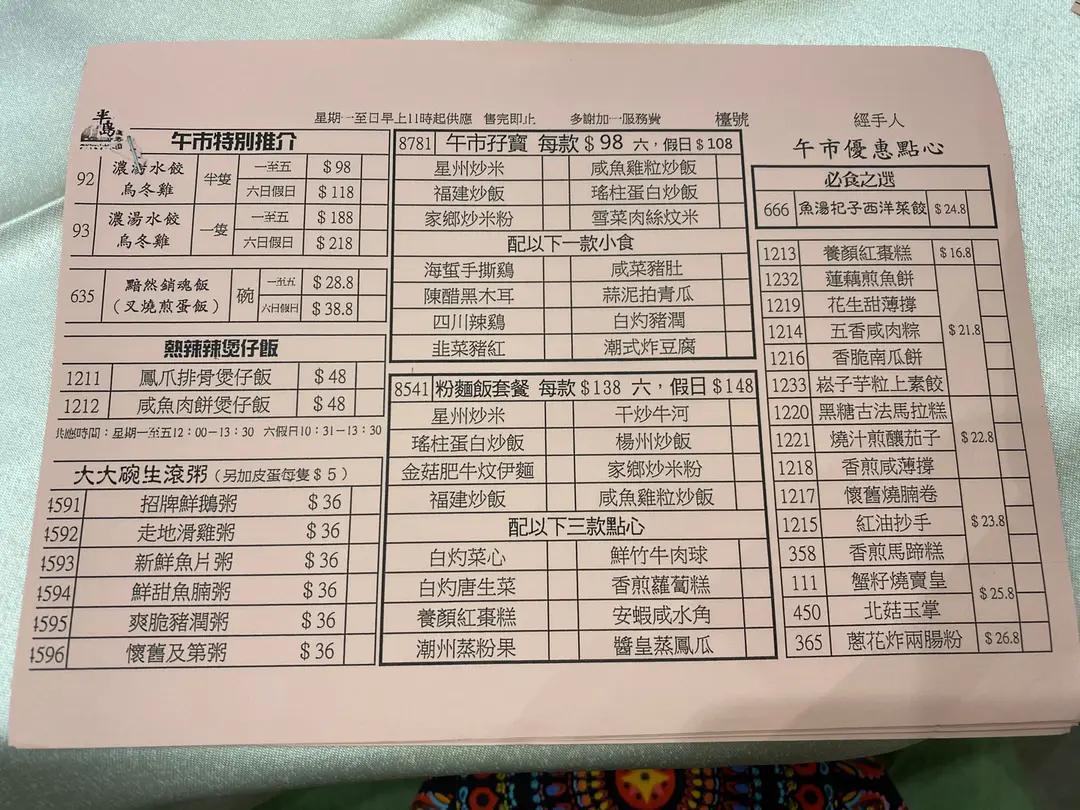 半島
星期一至日早上11時起供應 售完即止 多謝加一服務費 檯號 經手人
午市特別推介
92 濃湯水餃烏冬雞 半隻 一至五 $98
六日假日 $118
93 濃湯水餃烏冬雞 一隻 一至五 $188
六日假日 $218
635 黯然銷魂飯(叉燒煎蛋飯) 碗 一至五 $28.8
六日假日 $38.8
熱辣辣煲仔飯
1211 鳳爪排骨煲仔飯 $48
1212 咸魚肉餅煲仔飯 $48
供應時間:星期一至五12:00-13:30 六假日10:31-13:30
大大碗生滾粥(另加皮蛋每隻$5)
4591 招牌鮮鵝粥 $36
4592 走地滑雞粥 $36
4593 新鮮魚片粥 $36
4594 鮮甜魚腩粥 $36
4595 爽脆豬潤粥 $36
4596 懷舊及第粥 $36
8781 午市孖寶 每款$98 六,假日$108
星州炒米 咸魚雞粒炒飯
福建炒飯 瑤柱蛋白炒飯
家鄉炒米粉 雪菜肉絲炆米
配以下一款小食
海蜇手撕鷄 咸菜豬肚
陳醋黑木耳 蒜泥拍青瓜
四川辣鷄 白灼豬潤
韭菜豬紅 潮式炸豆腐
8541 粉麵飯套餐 每款$138 六,假日$148
星州炒米 干炒牛河
瑤柱蛋白炒飯 楊州炒飯
金菇肥牛炆伊麵 家鄉炒米粉
福建炒飯 咸魚雞粒炒飯
配以下三款點心
白灼菜心 鮮竹牛肉球
白灼唐生菜 香煎蘿蔔糕
養顏紅棗糕 安蝦咸水角
潮州蒸粉果 醬皇蒸鳳瓜
午市優惠點心
必食之選
666 魚湯杞子西洋菜餃 $24.8
1213 養顏紅棗糕 $16.8
1232 蓮藕煎魚餅
1219 花生甜薄撐
1214 五香咸肉粽 $21.8
1216 香脆南瓜餅
1233 崧子芋粒上素餃
1220 黑糖古法馬拉糕
1221 燒汁煎釀茄子 $22.8
1218 香煎咸薄撐
1217 懷舊燒腩卷
1215 紅油抄手 $23.8
358 香煎馬蹄糕
111 蟹籽燒賣皇 $25.8
450 北菇玉掌
365 蔥花炸兩腸粉 $26.8